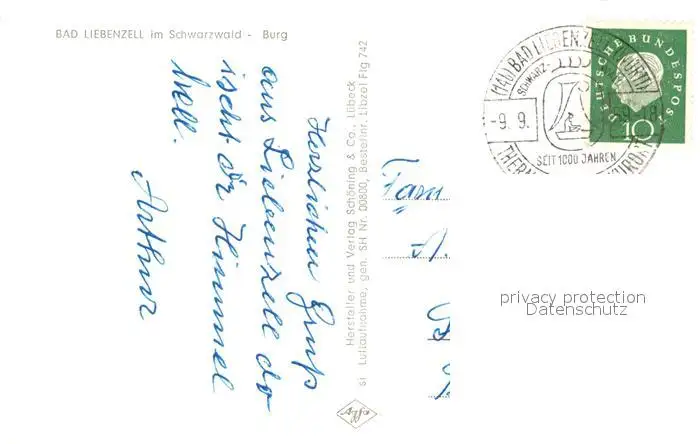 BAD LIEBENZELL im Schwarzwald - Burg
Herzlichen Gruß
aus Liebenzell do
ischt dr Himmel
hell.
Arthur
Hersteller und Verlag Schöning & Co., Lübeck
si Luftaufnahme, gen. SH Nr. 00800, Bestellnr. Libzel Flg 742
Fam
BAD LIEBENZELL
SCHWARZ-
-9. 9.
SEIT 1000 JAHREN
THERM
DEUTSCHE BUNDESPOST
10
privacy protection
Datenschutz